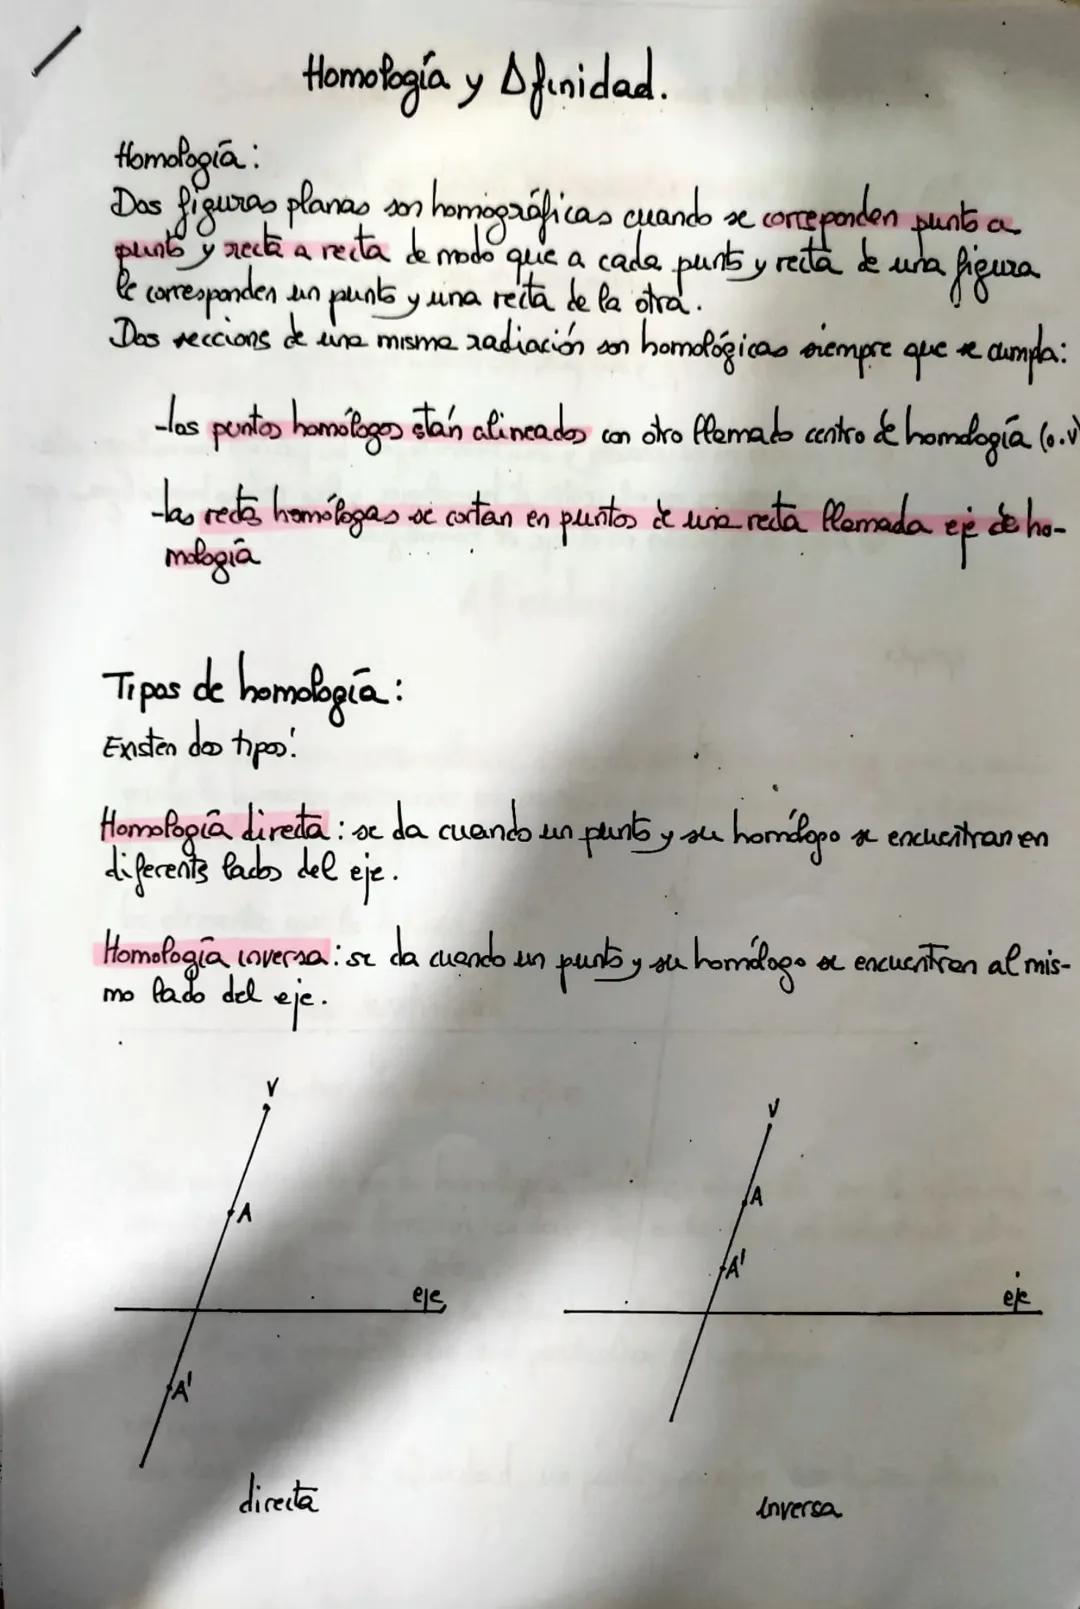 Homología y Afinidad.
Homología:
Dos figuras planas son homográficas cuando se corresponden punto a
punto y recta a recta de modo que a cada punto y recta de una figura
le corresponden un punto y una recta de la otra.
Dos seccions de una misma radiación son homológicas siempre que se cumpla:
-los puntos homólogos stán alineados con otro llamado centro de homología (o.v)
-las rectas homólogas se cortan en puntos de una recta llamada eje de ho-
mología
Tipos de homología:
Existen dos tipos:
Homología directa: se da cuando un punto y su homólogo se encuentran en
diferents lados del eje.
Homología inversa: se da cuando un punto y su homólogo se encuentran al mis-
mo lado del eje.
V
V
A
A
A'
eje
eje
A'
directa
inversa